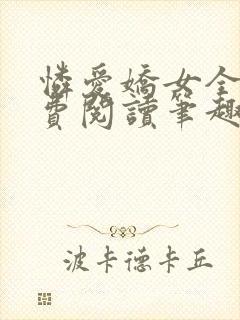 憐愛嬌女全
費閱讀筆趣
波卡德卡丘